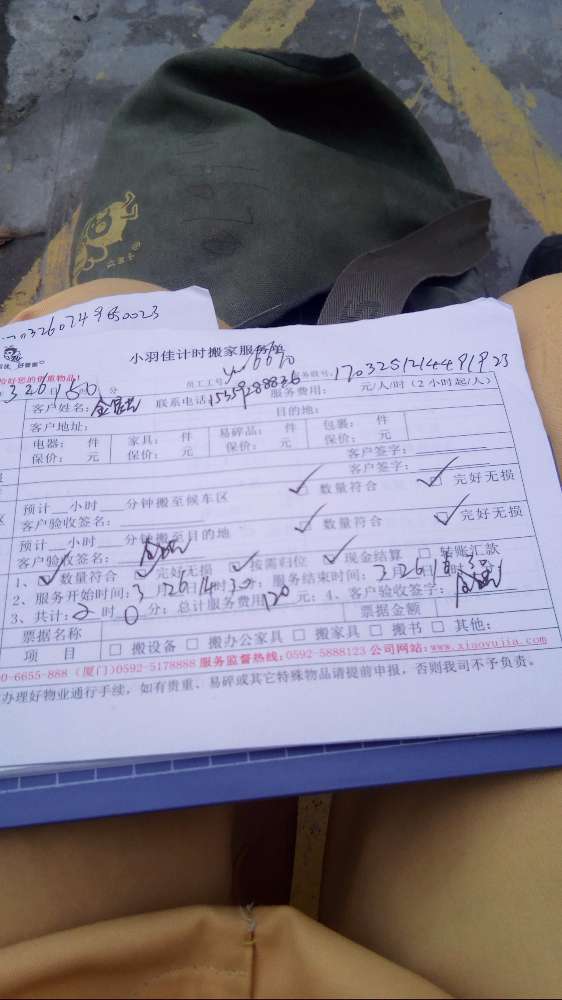 小羽佳计时搬家服务单
好您的贵重物品!
员工工号
服务单号: 17032512144919 23
3 26日15 0分
客户姓名: 联系电话 服务费用: 元/人/时 (2小时起/人)
客户地址: 目的地:
电器: 件 家具: 件 易碎品: 件 包裹: 件
保价: 元 保价: 元 保价: 元 保价: 元
客户签字:
客户签字:
预计__小时 分钟搬至候车区 数量符合 完好无损
客户验收签名:
预计__小时 分钟搬至目的地 数量符合 完好无损
客户验收签名:
1、数量符合 完好无损 按需归位 现金结算 转账汇款
2、服务开始时间: 3月26日14时30分; 服务结束时间: 3月26日 时30
3、共计: 2时0分; 总计服务费用120元; 4、客户验收签字:
票据名称 票据金额
项 目 搬设备 搬办公家具 搬家具 搬书 其他:
0-6655-888 (厦门)0592-5178888 服务监督热线: 0592-5888123 公司网站: www.xiaoyujia.com
办理好物业通行手续, 如有贵重、易碎或其它特殊物品请提前申报, 否则我司不予负责。